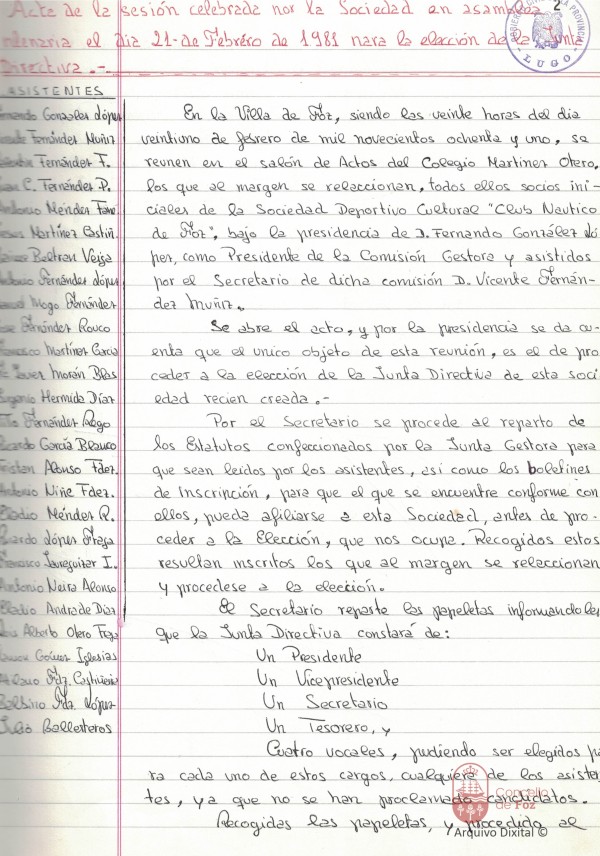 Acta de la sesión celebrada por la Sociedad en asamblea
el dia 21 de Febrero de 1981 para la elección de la Junta
Directiva.-
2
LUGO
ASISTENTES
Gonzalez López
Fernández Muñiz
Fernández F.
C. Fernández P.
Méndez
Martínez
Beltran Veiga
Fernández López
Mogo Fernández
Fernández Rouco
Martínez García
Javer Morán Blas
Hermida Díaz
Fernández Rego
García Blanco
Alonso Fdez.
Niñe Fdez.
Méndez R.
López Fraga
Jaureguizar I.
Antonio Neira Alonso
Eladio Andrade Diaz
Alberto Otero
Gómez Iglesias
Fdz.
Balbino Fdz. López
Julio Ballesteros
En la Villa de Foz, siendo las veinte horas del dia
veintiuno de febrero de mil novecientos ochenta y uno, se
reunen en el salón de Actos del Colegio Martinez Otero,
los que al margen se relaccionan, todos ellos socios ini-
ciales de la Sociedad Deportivo Cultural "Club Nautico
de Foz", bajo la presidencia de D. Fernando González Ló
pez, como Presidente de la Comisión Gestora y asistidos
por el Secretario de dicha comisión D. Vicente Fernán-
dez Muñiz.
Se abre el acto, y por la presidencia se da cu-
enta que el unico objeto de esta reunión, es el de pro
ceder a la elección de la Junta Directiva de esta soci
edad recien creada.-
Por el Secretario se procede al reparto de
los Estatutos confeccionados por la Junta Gestora para
que sean leidos por los asistentes, asi como los boletines
de inscripción, para que el que se encuentre conforme con
ellos, pueda afiliarse a esta Sociedad, antes de pro-
ceder a la Elección, que nos ocupa. Recogidos estos
resultan inscritos los que al margen se relaccionan
y procedese a la elección.
El Secretario reparte las papeletas informandoles
que la Junta Directiva constará de:
Un Presidente
Un Vicepresidente
Un Secretario
Un Tesorero, y
Cuatro vocales, pudiendo ser elegidos pa
ra cada uno de estos cargos, cualquiera de los asisten
tes, ya que no se han proclamado candidatos.
Recogidas las papeletas, y procedido al
Concello
de Foz
Arquivo Dixital ©